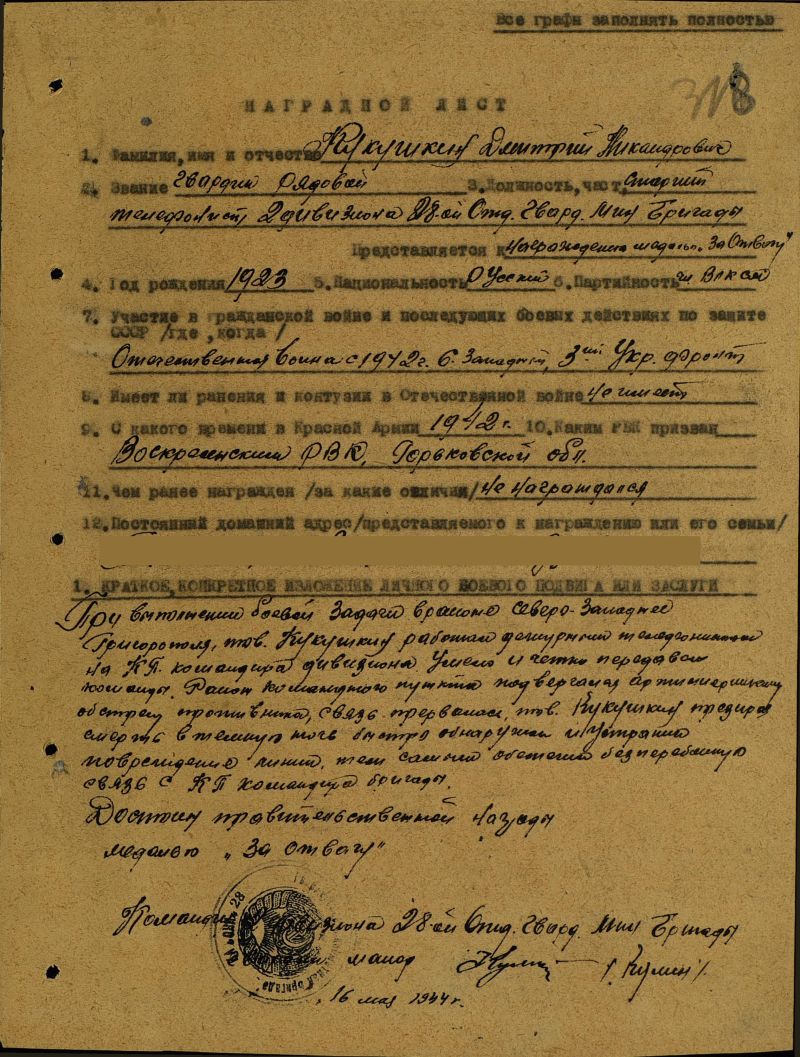 Все графы заполнять полностью
318
НАГРАДНОЙ ЛИСТ
1. Фамилия, имя и отчество Кукушкин Дмитрий Никандрович
2. Звание Гвардии Рядовой 3. Должность, часть Старший
телефонист 2 дивизиона 28-ой Отд. Гвард. Мин Бригады
Представляется к награждению медалью „За Отвагу"
4. Год рождения 1923 5. Национальность Русский 6. Партийность чл ВЛКСМ
7. Участие в гражданской войне и последующих боевых действиях по защите
СССР /где, когда/
Отечественная война с 1942 г. Западный, 3ий Укр. фронт
8. Имеет ли ранения и контузии в Отечественной войне не имеет
9. С какого времени в Красной Армии 1942 г. 10. Каким РВК призван
Воскресенским РВК, Горьковской обл.
11. Чем ранее награжден /за какие отличия/ не награждался
12. Постоянный домашний адрес/представляемого к награждению или его семьи/
1. КРАТКОЕ, КОНКРЕТНОЕ ИЗЛОЖЕНИЕ ЛИЧНОГО БОЕВОГО ПОДВИГА ИЛИ ЗАСЛУГИ
При выполнении боевой задачи в районе северо-западнее
Григорополя, тов. Кукушкин работал дежурным телефонистом
на КП. командира дивизиона. Умело и четко передавал
команды. Район командного пункта подвергался артиллерийскому
обстрелу противника, связь прервалась, тов. Кукушкин презирая
смерть в темную ночь быстро обнаружил и устранил
повреждение линии, тем самым обеспечил безперебойную
связь с КП командира бригады.
Достоин правительственной награды
медалью „За отвагу"
Командир дивизиона 28-ой Отд. Гвард. Мин Бригады
майор /Кулин/
„16 мая 1944 г.